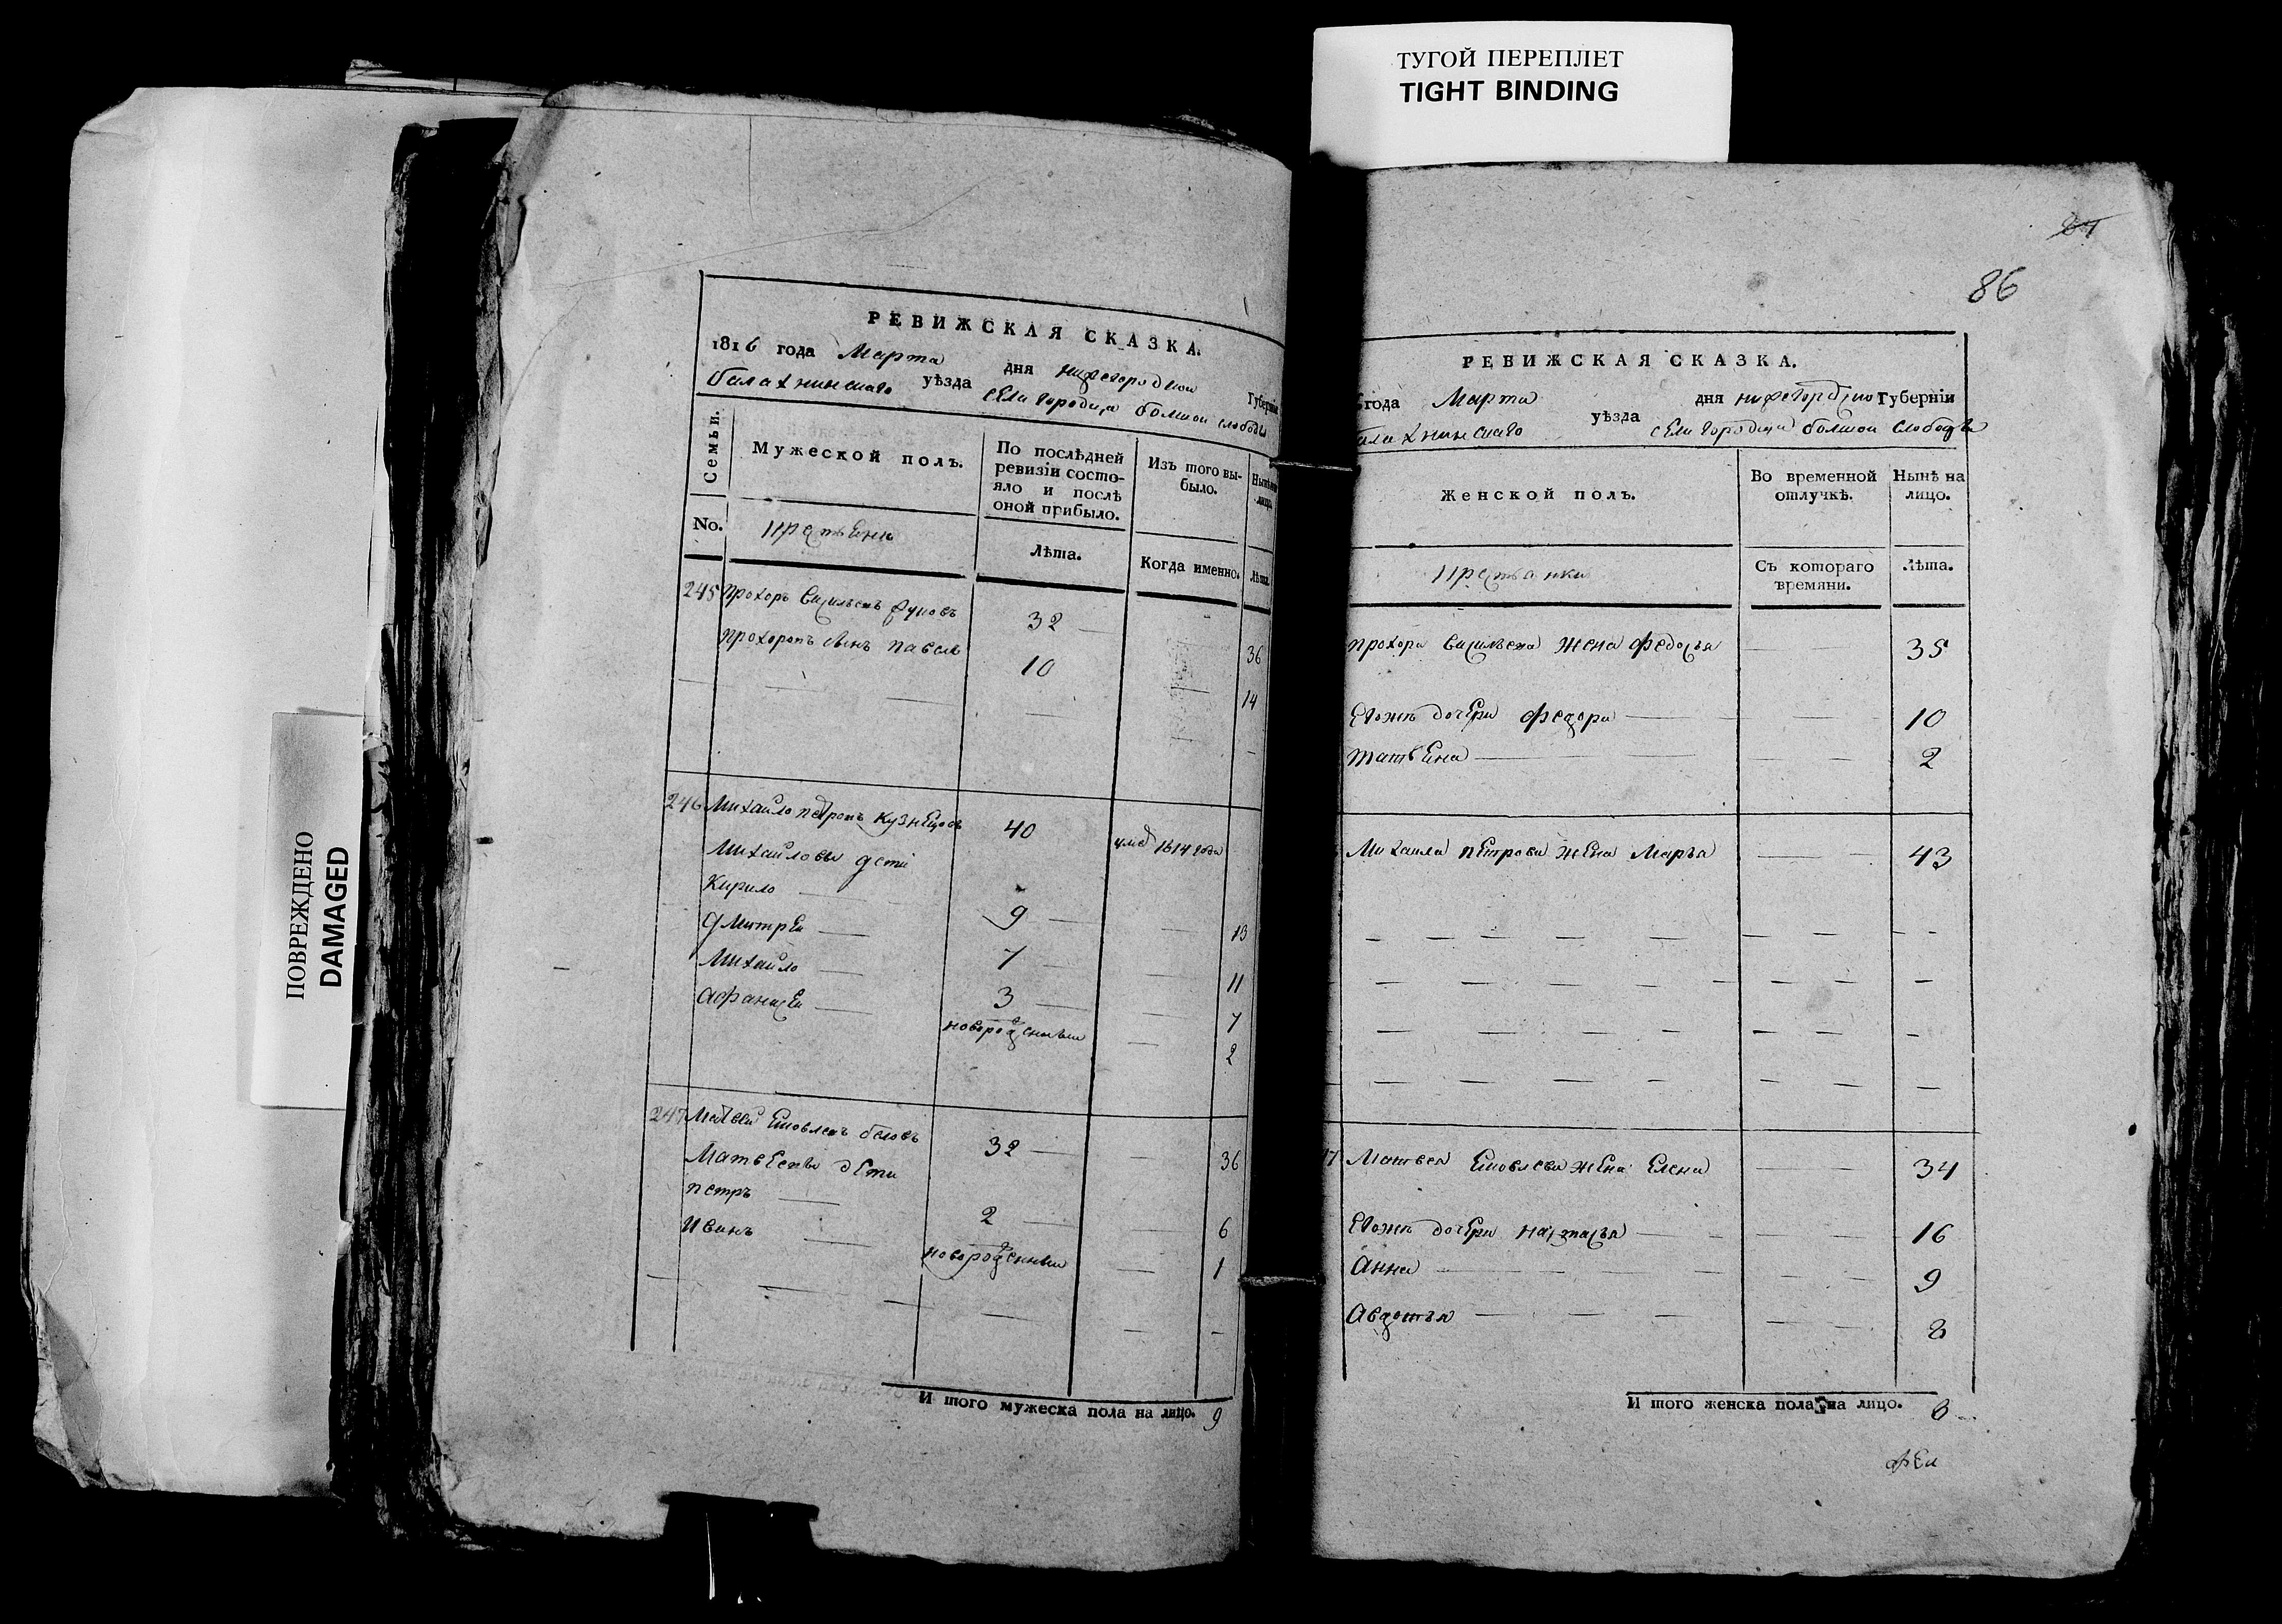 ТУГОЙ ПЕРЕПЛЕТ
TIGHT BINDING
ПОВРЕЖДЕНО
DAMAGED
РЕВИЖСКАЯ СКАЗКА.
1816 года Марта дня нижегородской Губерніи
балахнинскаго уѣзда села городца болшой слободы
Семьи.
No.
Мужеской полъ.
По послѣдней ревизіи состояло и послѣ оной прибыло.
Изъ того выбыло.
Нынѣ на лицо.
Лѣта.
Когда именно.
Лѣта.
245 прохоръ васильевъ 32 36
прохоровъ сынъ павелъ 10 14
246 Михайло петровъ кузнецовъ 40 умер 1814 года
Михайловы дети
Кирило 9 13
Дмитрей 7 11
Михайло 3 7
Афанасей новорожденный 2
247 Матвей яковлевъ беловъ 32 36
Матвеевы дети
петръ 2 6
Иванъ новорожденный 1
И того мужеска пола на лицо. 9
84
86
РЕВИЖСКАЯ СКАЗКА.
года Марта дня нижегородской Губерніи
балахнинскаго уѣзда села городца болшой слободы
Женской полъ.
Во временной отлучкѣ.
Нынѣ на лицо.
Съ котораго времяни.
Лѣта.
прохора васильева жена федосья 35
Евожъ дочери федора 10
татьяна 2
Михаила петрова жена Марья 43
Матвея яковлева жена Елена 34
Евожъ дочери настасья 16
Анна 9
Авдотья
И того женска пола на лицо. 8